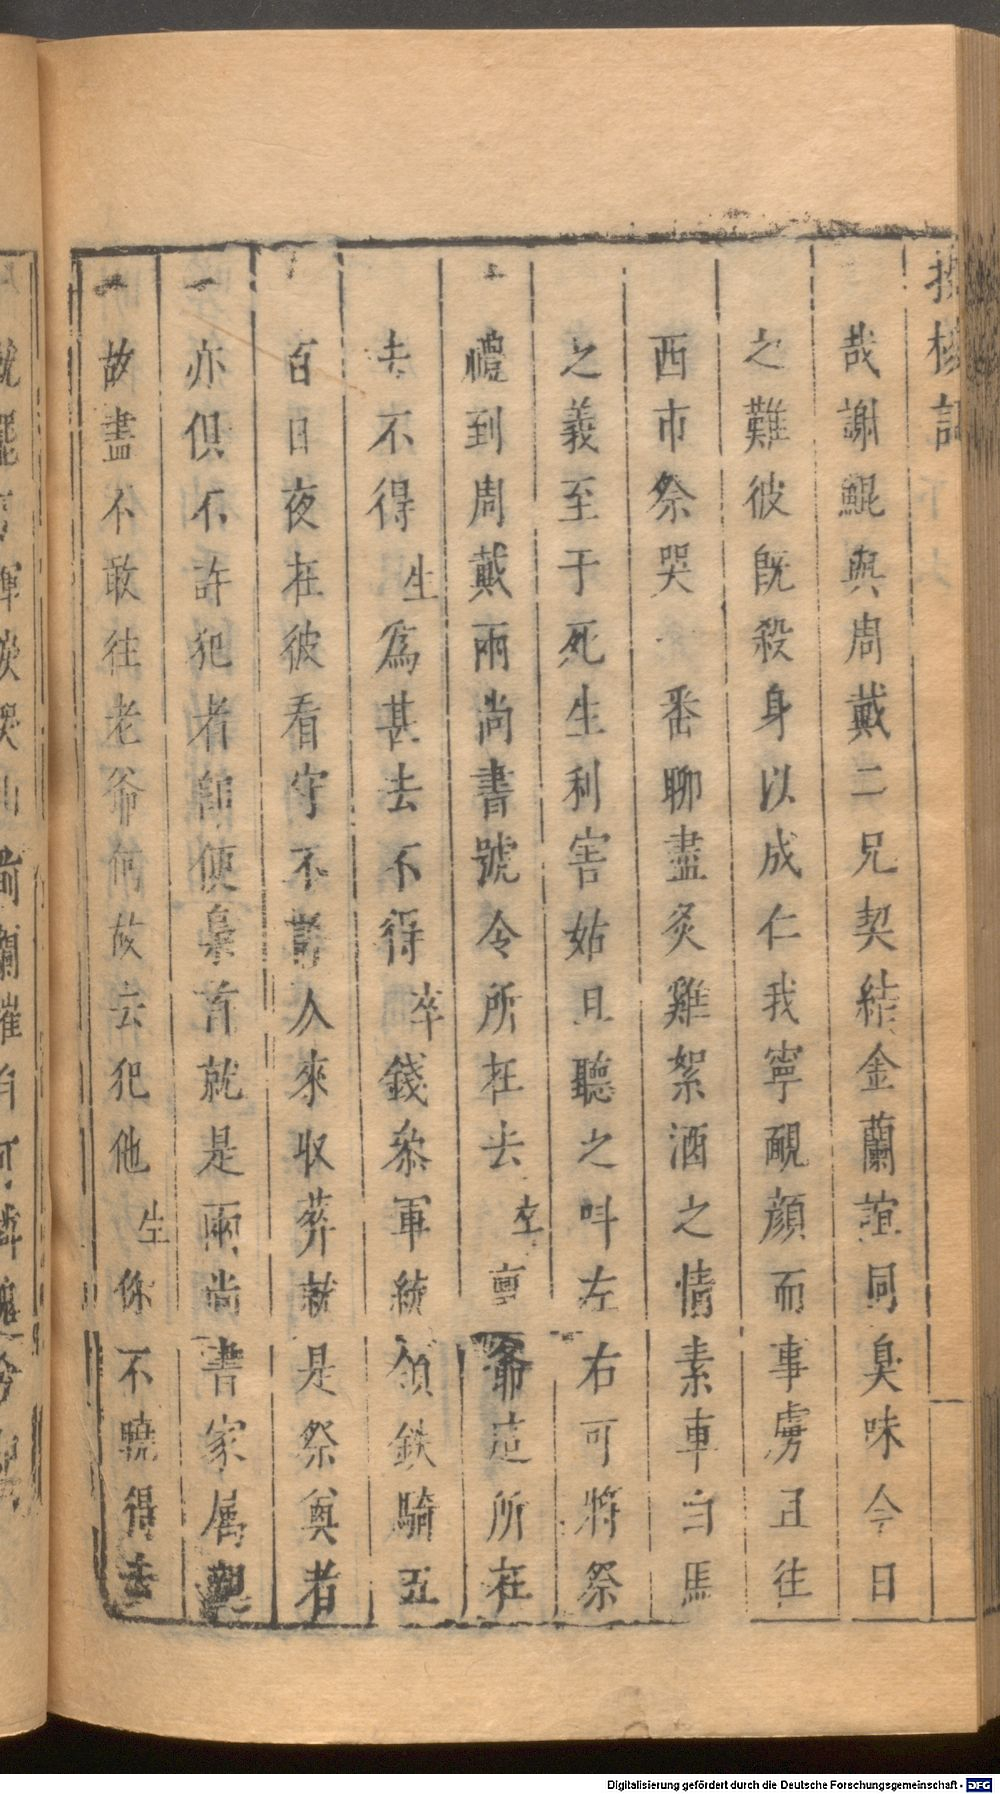 投梭記
哉謝鯤與周戴二兄契結金蘭誼同臭味今日
之難彼旣殺身以成仁我寧靦顔而事虜丑往
西市祭哭一番聊盡灸雞絮酒之情素車白馬
之義至于死生利害姑且聽之呌左右可將祭
禮到周戴兩尚書號令所在去卒禀爺這所在
去不得生爲甚去不得卒錢叅軍統領鉄騎五
百日夜在彼看守不許人來収葬就是祭奠者
亦俱不許犯者卽便梟首就是兩尚書家属親
故盡不敢往老爺何故去犯他生你不曉得去
Digitalisierung gefördert durch die Deutsche Forschungsgemeinschaft - DFG